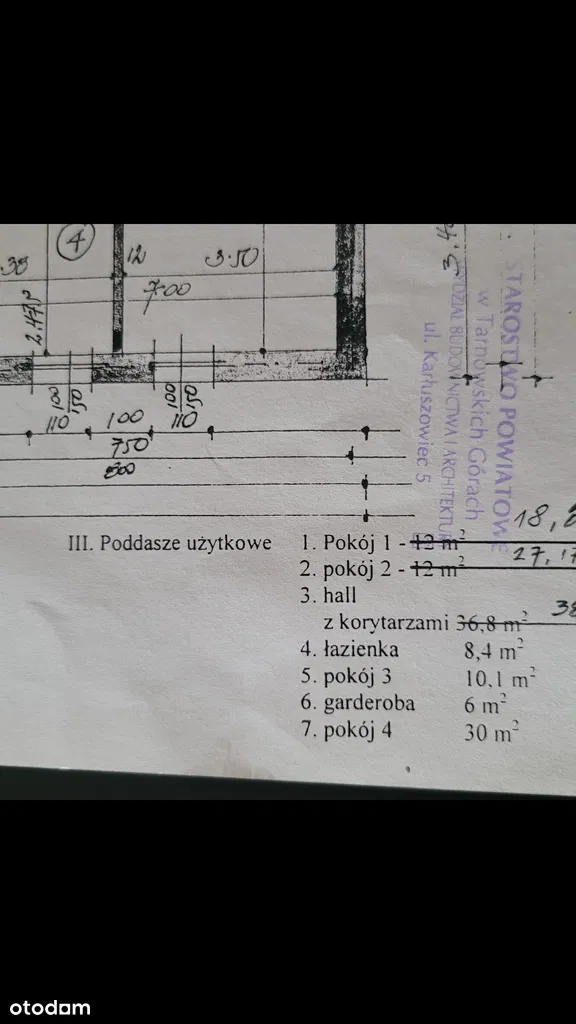 4
38
12
3.50
7.00
2.475
100
150
110
100
100
150
110
750
800
STAROSTWO POWIATOWE
w Tarnowskich Górach
WYDZIAŁ BUDOWNICTWA I ARCHITEKTURY
ul. Karłuszowiec 5
III. Poddasze użytkowe
1. Pokój 1 - 12 m² 18,8
2. pokój 2 - 12 m² 27,17
3. hall
z korytarzami 36,8 m² 38
4. łazienka 8,4 m²
5. pokój 3 10,1 m²
6. garderoba 6 m²
7. pokój 4 30 m²
otodom